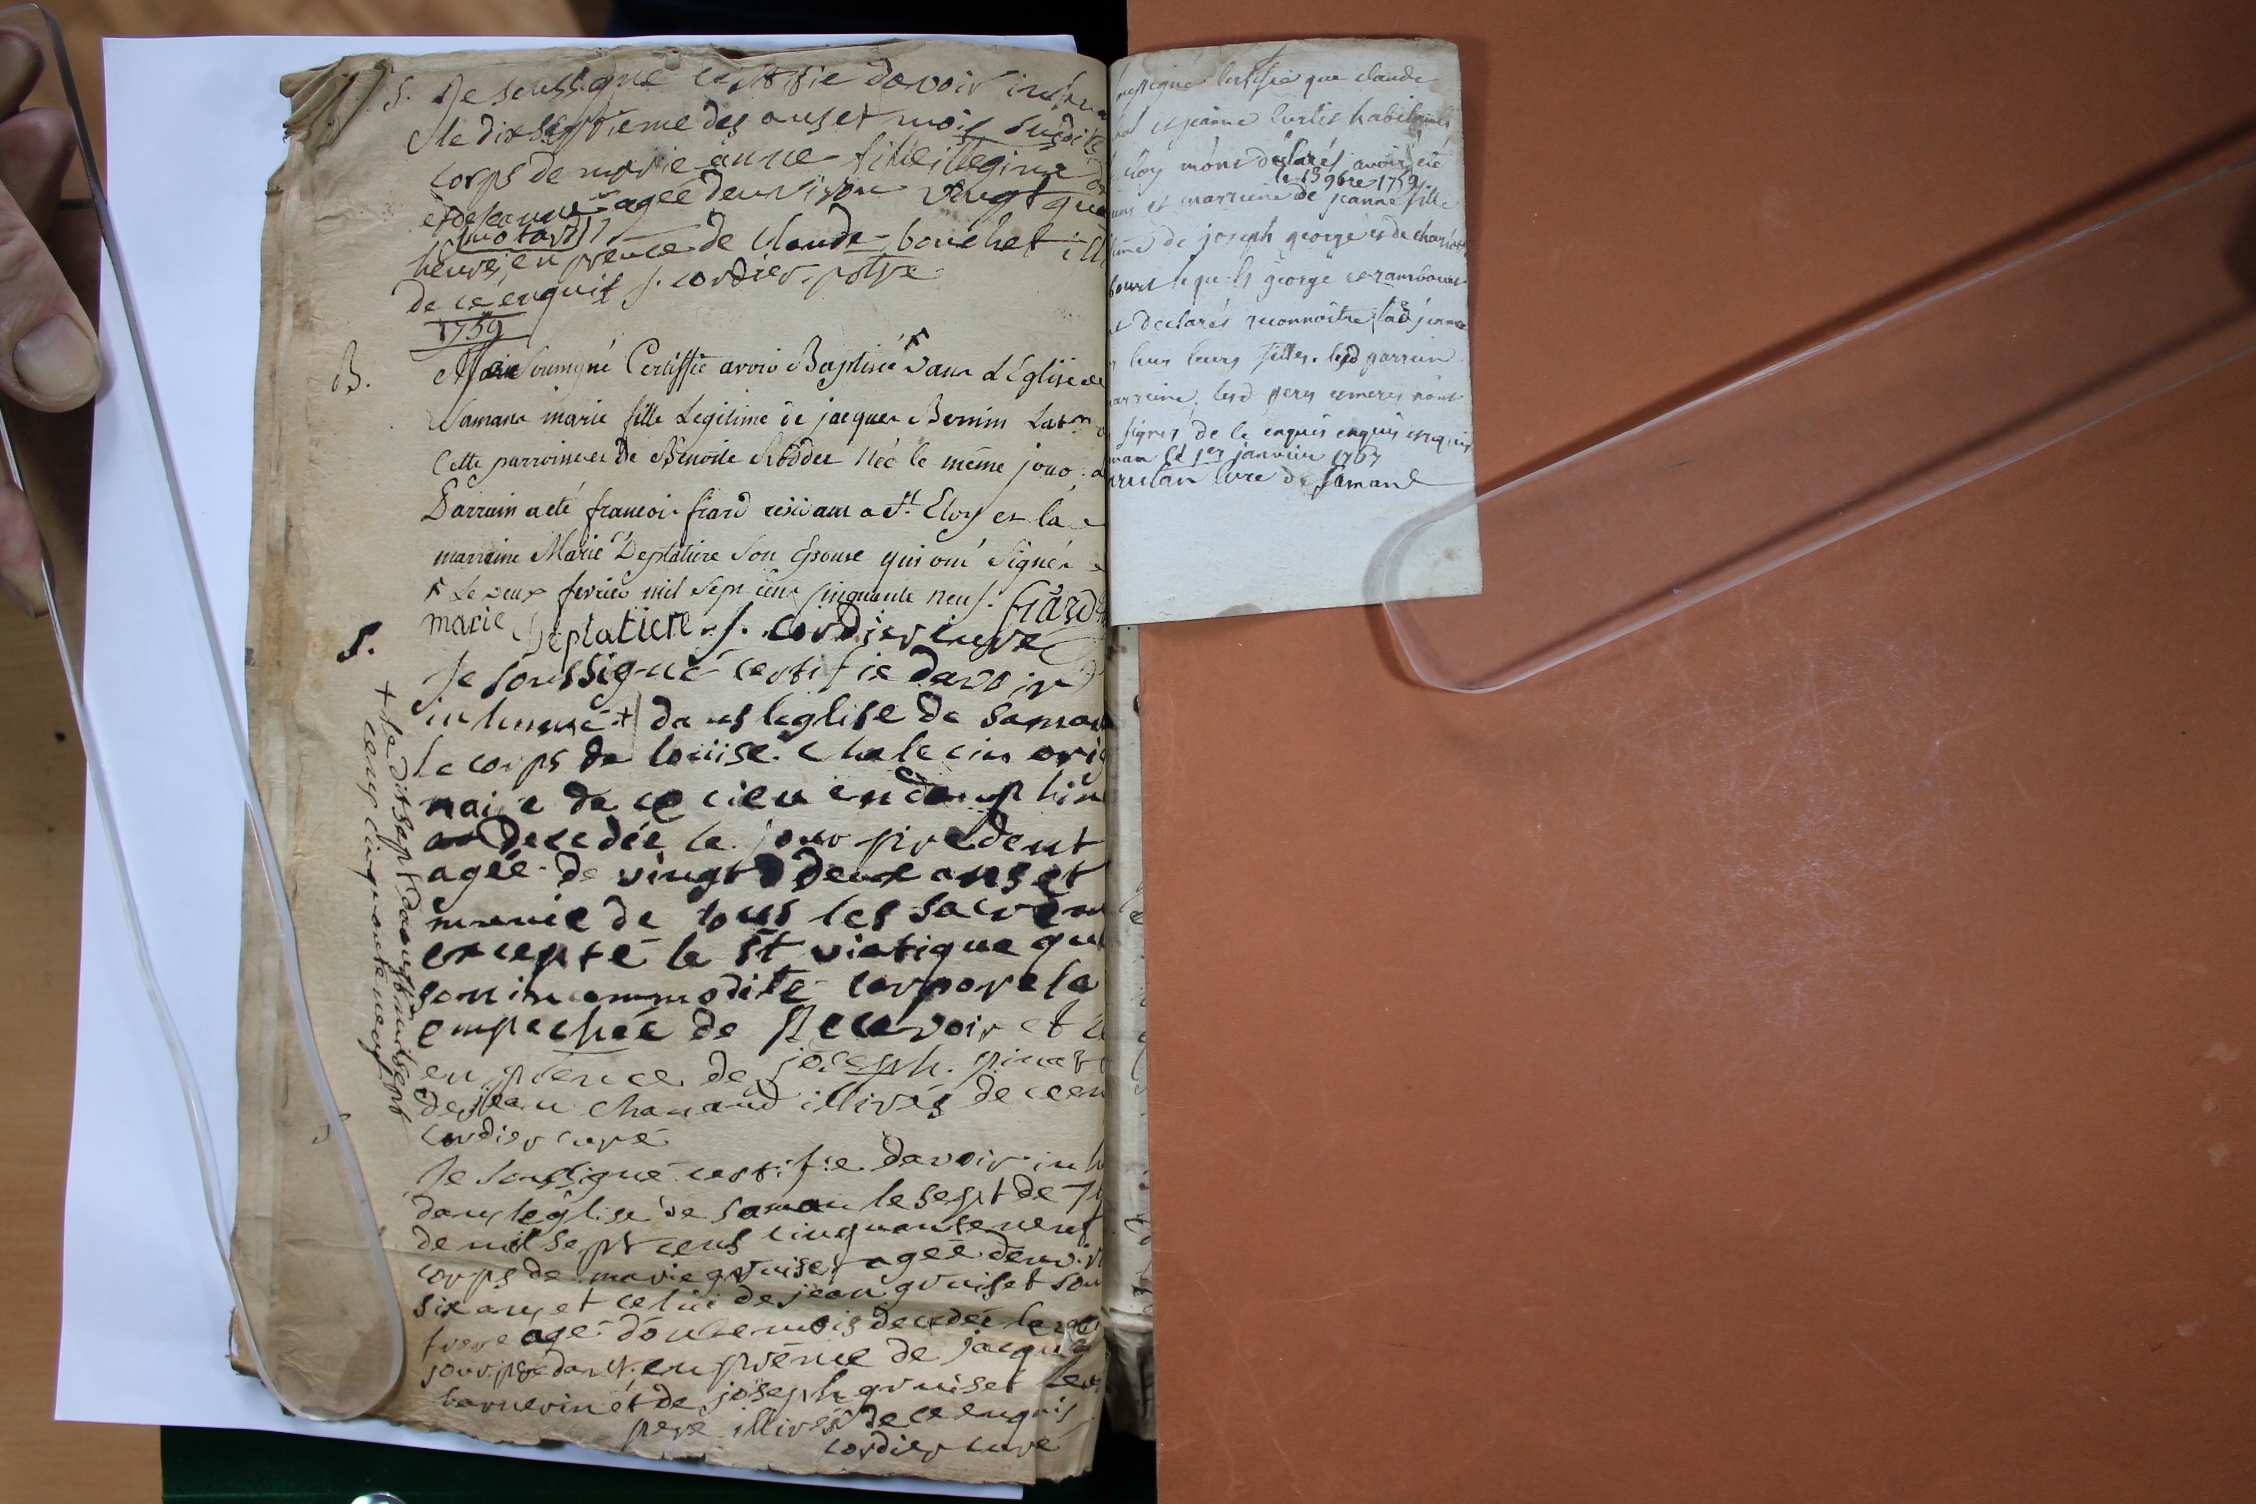 S. Je soussigné certifie davoir inhu
le dixseptième des ans et mois susdits
corps de marie anne fille illegime
et de jeanne agée denviron vingt qua
motard
heures en prence de Claude bouchet ill
de ce enquis f. cordier ptre
1759
B.
soussigné Certiffie avoir Baptisée dans L'Eglise de
Samans marie fille Legitime de jacques Bernin
Cette parroisse et de Benoite née le même jour
Parrain a été francois fiard residant a St. Eloy et la
marraine Marie Deplatiere Son Epouse qui ont Signér
Le deux fevrier mil sept cens cinquante neuf. fiard
marie Deplatiere f. cordier cure
S.
Je soussigné certifie davoir
inhumé + dans leglise de saman
le corps de loüise chalecin ori
naire de en dauphin
decedée le jour predent
agée de vingt deux ans et
munie de tous les sacrem
excepté le st viatique qu
son incommodité corporele
empechée de Recevoir et
en prence de joseph pinat
de jean chanaud illirés de ceen
cordier curé
+ le dit sept daoust mil sept
cens cinquante neuf
S
Je soussigné certifie davoir in h
dans léglise de saman le sept de
de mil sept cens cinquante neuf
corps de marie gruiset agée denvir
six ans et celui de jean gruiset son
frere agé donze mois decedée le
jour predant en prence de jacqu
barnerin et de joseph gruiset leu
pere illirés de ce enquis
cordier cure
ussigné certifie que claude
et jeanne curtet habitants
Eloy mont déclarés avoir été
le 13 9bre 1759
et marreine de jeanne fille
de joseph george et de charlot
bourt lequels george et rambourt
declarés reconnoitre lad jeanne
leur fille. lesd parrein
arreine lesd pere et mere n'ont
signés de ce enquis enquis enquis
1er janvier 1767
curé de Samans